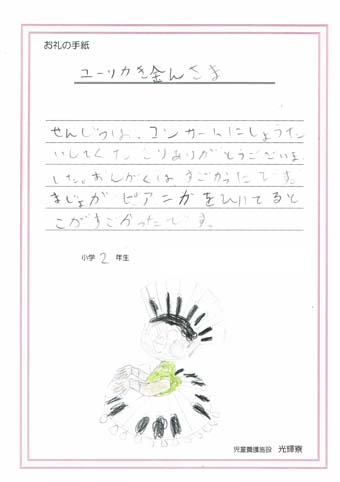 お礼の手紙
ユーリカき金んさま
せんじつは、コンサートにしょうた
いしてくださりありがとうございま
した。おんがくは、すごかったです。
まじょが ピアニカをひいてると
こがすごかったです。
小学 2 年生
児童養護施設 光輝寮